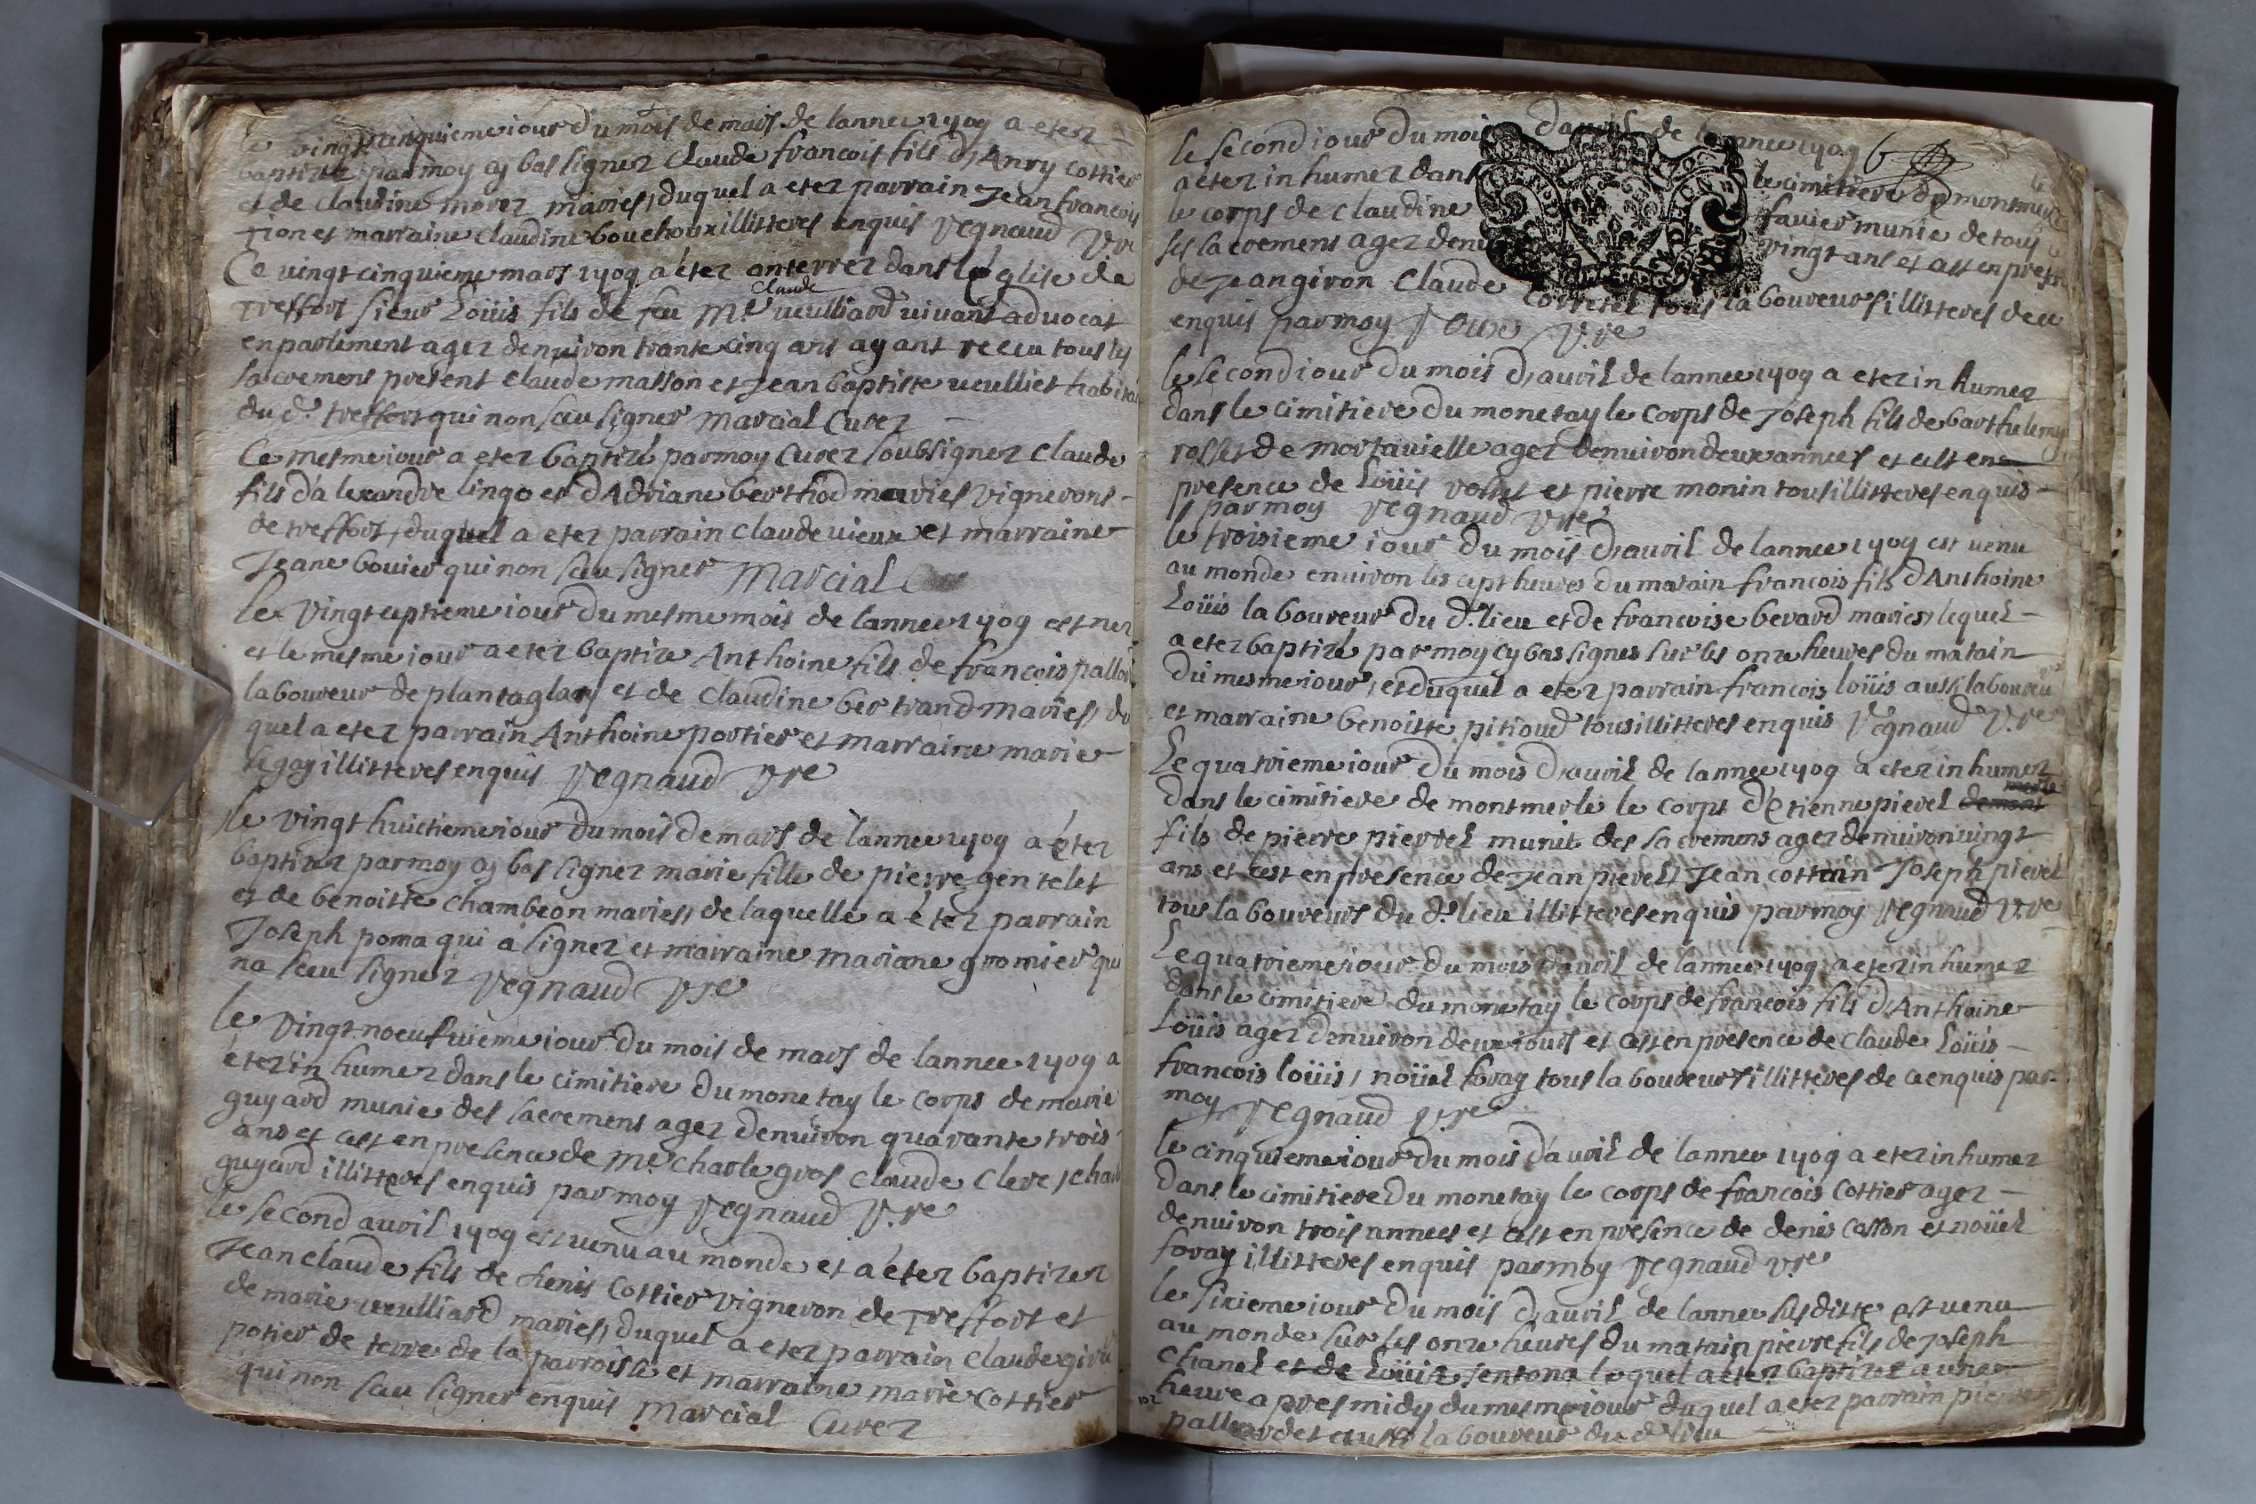 le vingt cinquieme iour du mois de mars de lannee 1709 a etez
baptize par moy cy bas signez Claude francois fils d'Anry Cottier
et de Claudine morez mariés, duquel a etez parrain Jean francois
Tion et marraine Claudine bouchoux illitteres enquis Regnaud Vre
Ce vingt cinquieme mars 1709 a étez anterrez dans l'eglise de
Treffort sieur Loüis fils de feu Me Claude ueulliard uiuant aduocat
en parlement agez denuiron trante cinq ans ayant receu tous les
sacremens present Claude masson et Jean baptiste ueulliet habitans
du d. treffort qui non sceu signer Marcial Curez
Ce mesme iour a etez baptizé par moy Curez soubsignez Claude
fils d'alexandre lingo et dAdriane berthod mariés vignerons
de treffort, duquel a etez parrain Claude uieux et marraine
Jeane bouier qui non sceu signer Marcial
le vingt septieme iour du mesme mois de lannee 1709 est nez
et le mesme iour a etez baptize Anthoine fils de francois pallor
laboureur de plantaglay et de Claudine bertrand mariés, du
quel a etez parrain Anthoine portier et marraine marie
legay illitteres enquis Regnaud Vre
le vingt huictieme iour du mois de mars de lannee 1709 a étez
baptizez par moy cy bas signez marie fille de pierre gentelet
et de benoitte Chambeon mariés, de laquelle a étez parrain
Joseph poma qui a signez et marraine mariane gromier qui
na sceu signer Regnaud Vre
le vingt noeufuieme iour du mois de mars de lannee 1709 a
étez in humez dans le cimitiere du monetay le corps de marie
guyard munie des sacremens agez denuiron quarante trois
ans et cest en presence de Me Charle gros Claude Clere, charl
guyard illitteres enquis par moy Regnaud Vre
le second auril 1709 est uenu au monde et a étez baptizez
Jean claude fils de denis Cottier vigneron de Treffort et
de marie ueulliard mariés, duquel a etez parrain Claude giro
potier de terre de la parroisse et marraine marie Cottier
qui non sceu signer enquis Marcial Curez
le second iour du mois d'auril de lannee 1709
a etez in humez dans le cimitiere de montmerle
le corps de Claudine fauier munie de tous
ses sacremens agez denuiron vingt ans et cest en presen
de Jean giron Claude Corretel tous laboureurs illitteres de ce
enquis par moy Vre
le second iour du mois d'auril de lannee 1709 a etez in humez
dans le cimitiere du monetay le corps de Joseph fils de barthelemy
rosset de mortauielle agez denuiron deux annees et cest en
presence de Loüis rosset et pierre monin tous illitteres enquis
par moy Regnaud Vre
le troisieme iour du mois d'auril de lannee 1709 est uenu
au monde enuiron les sept heures du matain francois fils dAnthoine
Loüis laboureur du d. lieu et de francoise berard mariés, lequel
a etez baptizé par moy cy bas signes sur les onze heures du matain
du mesme iour, et duquel a etez parrain francois loüis aussi laboureur
et marraine benoitte pitioud tous illitteres enquis Regnaud Vre
Le quatrieme iour du mois d'auril de lannee 1709 a etez in humez
dans le cimitiere de montmerle le corps d'Etienne pierel
fils de pierre pierrel munit des sacremens agez denuiron vingt
ans et cest en presence de Jean pierel, Jean cottain Joseph pierel
tous laboureurs du d. lieu illitteres enquis par moy Regnaud Vre
Le quatrieme iour du mois d'auril de lannee 1709 a etez in humez
dans le cimitiere du monetay le corps de francois fils d'Anthoine
Loüis agez denuiron deux iours et cest en presence de Claude Loüis
francois loüis, noüel foray tous laboureurs illitteres de ce enquis par
moy Regnaud Vre
le cinquieme iour du mois d'auril de lannee 1709 a etez in humez
dans le cimitiere du monetay le corps de francois Cottier agez
denuiron trois annees et cest en presence de denis Casson et noüel
foray illitteres enquis par moy Regnaud Vre
le sixieme iour du mois d'auril de lannee susditte est uenu
au monde sur les onze heures du matain pierre fils de Joseph
chanel et de Loüise sentona lequel a etez baptizez a une
heure apres midy du mesme iour duquel a etez parrain pierre
pallordet aussi laboureur du d. lieu